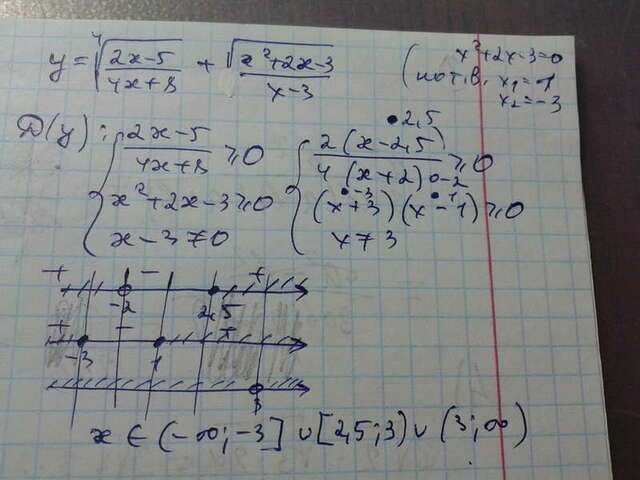 y = ⁴√((2x-5)/(4x+8)) + √(x²+2x-3)/(x-3)
(x²+2x-3=0
по т.В. x₁=1
x₂=-3
D(y): { (2x-5)/(4x+8) ≥ 0 { (2(x-2,5))/(4(x+2)) ≥ 0
•2,5
○-2
x²+2x-3 ≥ 0 (x+3)(x-1) ≥ 0
•-3 •1
x-3≠0 x≠3
+ - +
-2 2,5
+ - +
-3 1
3
x ∈ (-∞; -3] ∪ [2,5; 3) ∪ (3; ∞)